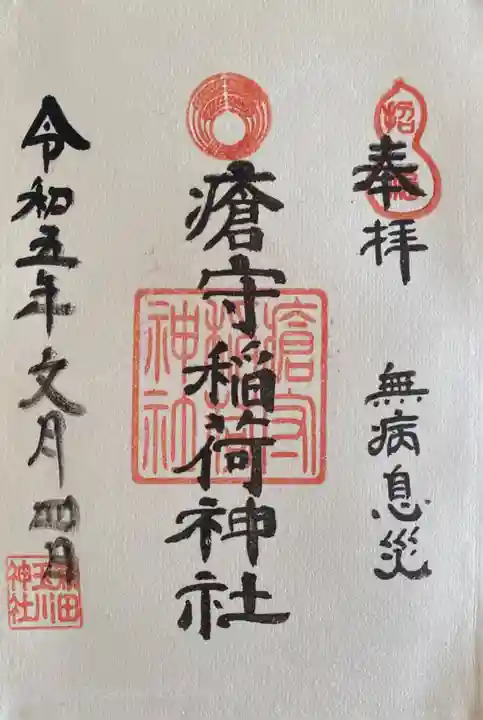 奉拝
無病息災
瘡守稲荷神社
令和五年文月四日
招福
瘡守稲荷神社
田玉川神社